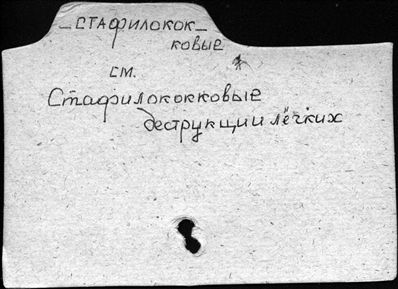 _СТАФИЛОКОК_
ковые
см.
Стафилококковые
деструкции лёгких